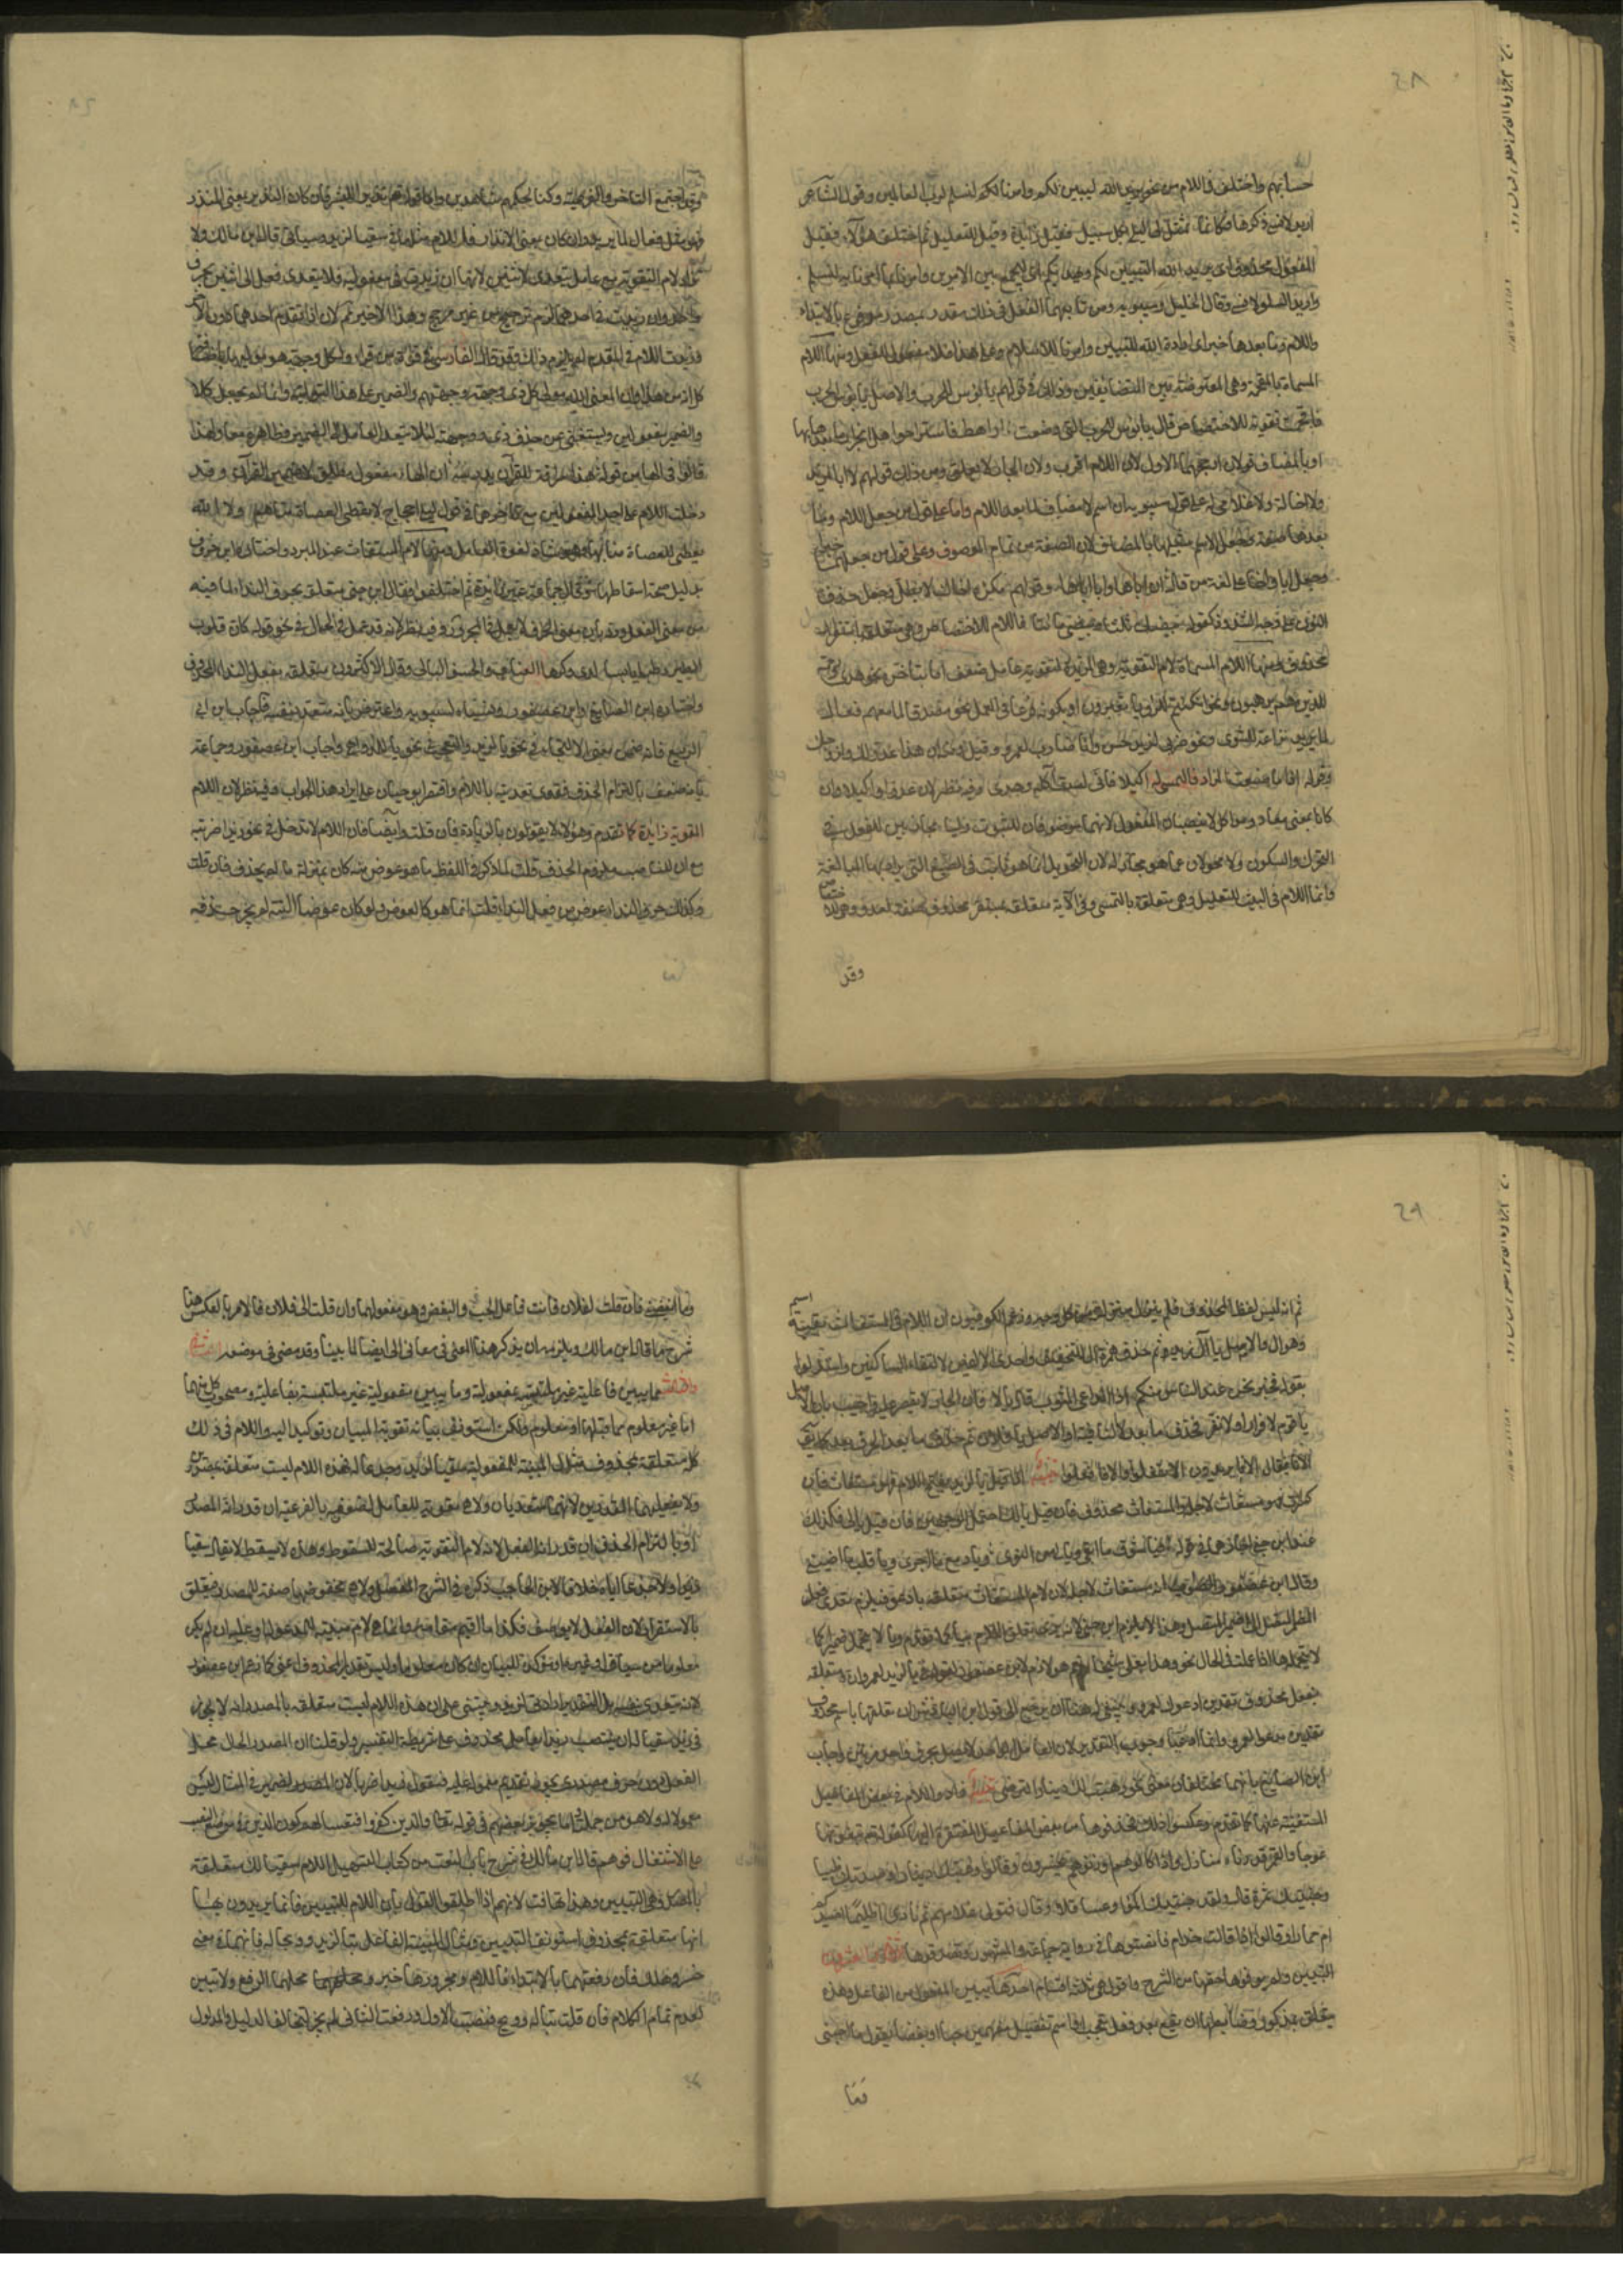 حسابهم واختلف في اللام من نحو يريد الله ليبين لكم وامرنا لنسلم لرب العالمين وقول الشاعر
اريد لانسى ذكرها فكانما تمثل لي ليلى بكل سبيل فقيل زائدة وقيل للتعليل ثم اختلف هؤلاء فقيل
المفعول محذوف اي يريد الله التبيين لكم ويهديكم اي ليجمع بين الامرين وامرنا بما امرنا به لنسلم
واريد السلو لانسى وقال الخليل وسيبويه ومن تابعهما الفعل في ذلك مقدر بمصدر مرفوع بالابتداء
واللام وما بعدها خبر اي ارادة الله للتبيين وامرنا للاسلام وعلى هذا فلا مفعول للفعل ومنها اللام
المسماة بالمقحمة وهي المعترضة بين المتضايفين وذلك في قولهم يا بؤس للحرب والاصل يا بؤس الحرب
فاقحمت تقوية للاختصاص قال يا بؤس للحرب التي وضعت اراهط فاستراحوا وهل انجرار ما بعدها بها
او بالمضاف قولان ارجحهما الاول لان اللام اقرب ولان الجار لا يعلق ومن ذلك قولهم لا ابا لزيد
ولا اخا له ولا غلامي له على قول سيبويه ان اسم لا مضاف لما بعد اللام واما على قول من جعل اللام وما
بعدها صفة وجعل الاسم شبيها بالمضاف لان الصفة من تمام الموصوف وعلى قول من جعلهما خبرا
وجعل ابا واخا على لغة من قال ان اباها وابا اباها وقولهم مكره اخاك لا بطل وجعل حذف
النون على وجه الشذوذ كقوله بيضك ثنتا وبيضي مائتا فاللام للاختصاص وهي متعلقة باستقرار
محذوف ومنها اللام المسماة لام التقوية وهي المزيدة لتقوية عامل ضعف اما بتأخره نحو هدى ورحمة
للذين هم لربهم يرهبون ونحو ان كنتم للرؤيا تعبرون او بكونه فرعا في العمل نحو مصدقا لما معهم فعال
لما يريد نزاعة للشوى ونحو ضربي لزيد حسن وانا ضارب لعمرو وقيل ومنه ان هذا عدو لك ولزوجك
وقوله اذا ما صنعت الزاد فالتمسي له اكيلا فاني لست آكله وحدي وفيه نظر لان عدوا واكيلا وان
كانا بمعنى معاد ومواكل لا ينصبان المفعول لانهما موضوعان للثبوت وليسا مجاريين للفعل في
التحرك والسكون ولا محولان عما هو مجار له لان التحويل انما هو ثابت في الصيغ التي يراد بها المبالغة
وانما اللام في البيت للتعليل وهي متعلقة بالتمسي وفي الآية متعلقة بمستقر محذوف صفة لعدو وهي للاختصاص
وقد
وقد اجتمع التأخر والفرعية في وكنا لحكمهم شاهدين واما قوله تعالى نذيرا للبشر فان كان النذير بمعنى المنذر
فهو مثل فعال لما يريد وان كان بمعنى الانذار فاللام مثلها في سقيا لزيد وسيأتي قال ابن مالك ولا
تزاد لام التقوية مع عامل يتعدى لاثنين لانها ان زيدت في مفعوليه فلا يتعدى فعل الى اثنين بحرف
واحد وان زيدت في احدهما لزم ترجيح من غير مرجح وهذا الاخير ممنوع لانه اذا تقدم احدهما دون الآخر
وزيدت اللام في المقدم لم يلزم ذلك وقد قال الفارسي في قراءة من قرأ ولكل وجهة هو موليها باضافة
كل انه من هذا وان المعنى الله مولي كل ذي وجهة وجهته والضمير على هذا للتولية وانما لم يجعل كلا
والضمير مفعولين ويستغنى عن حذف ذي ووجهته لئلا يتعدى العامل الى الضمير وظاهره معا ولهذا
قالوا في الهاء من قوله هذا سراقة للقرآن يدرسه ان الهاء مفعول مطلق لا ضمير القرآن وقد
دخلت اللام على احد المفعولين مع تأخرهما في قول ليلى احجاج لا تعطي العصاة مناهم ولا الله
يعطي للعصاة مناها وهو شاذ لقوة العامل ومنها لام المستغاث عند المبرد واختاره ابن خروف
بدليل صحة اسقاطها وقال جماعة غير زائدة ثم اختلفوا فقال ابن جني متعلقة بحرف النداء لما فيه
من معنى الفعل ورد بان معنى الحرف لا يعمل في المجرور وفيه نظر لانه قد عمل في الحال في نحو قوله كان قلوب
الطير رطبا ويابسا لدى وكرها العناب والحشف البالي وقال الاكثرون متعلقة بفعل النداء المحذوف
واختاره ابن الضائع وابن عصفور ونسباه لسيبويه واعترض بانه متعد بنفسه فاجاب ابن ابي
الربيع فانه ضمن معنى الالتجاء في نحو يا لزيد والتعجب في نحو يا للدواهي واجاب ابن عصفور وجماعة
بانه ضعف بالتزام الحذف فقوي تعديه باللام واقتصر ابو حيان على ايراد هذا الجواب وفيه نظر لان اللام
المقوية زايدة كما تقدم وهؤلاء لا يقولون بالزيادة فان قلت وايضا فان اللام لا تدخل في نحو زيدا ضربته
مع ان الناصب ملتزم الحذف قلت لما ذكر في اللفظ ما هو عوض منه كان بمنزلة ما لم يحذف فان قلت
وكذلك حرف النداء عوض من فعل النداء قلت انما هو كالعوض ولو كان عوضا البتة لم يجز حذفه
ثم انه ليس لفظ المحذوف فلم ينزل منزلته من كل وجه وزعم الكوفيون ان اللام في المستغاث بقية اسم
وهو آل والاصل يا آل زيد ثم حذفت همزة آل للتخفيف واحدى الالفين لالتقاء الساكنين واستدلوا
بقوله فخير نحن عند الناس منكم اذا الداعي المثوب قال يا لا فان الجار لا يقتصر عليه واجيب بان الاصل
يا قوم لا فرار او لا نفر فحذف ما بعد لا النافية او الاصل يا لفلان ثم حذف ما بعد الحرف كما يقال
الا تا فيقال الا فا يريدون الا تفعلوا والا فافعلوا تنبيه اذا قيل يا لزيد بفتح اللام فهو مستغاث فان
كسرت فهو مستغاث لاجله والمستغاث محذوف فان قيل يا لك احتمل الوجهين فان قيل يا لي فكذلك
عند ابن جني اجازهما في قوله فيا شوق ما ابقى ويا لي من النوى ويا دمع ما اجرى ويا قلب ما اصبى
وقال ابن عصفور الصواب انه مستغاث لاجله لان لام المستغاث متعلقة بادعو فيلزم تعدي فعل
المضمر المتصل الى ضميره المتصل وهذا لا يلزم ابن جني لانه يرى تعلق اللام بيا كما تقدم ويا لا تتحمل ضميرا كما
لا تتحمله ها اذا عملت في الحال نحو وهذا بعلي شيخا نعم هو لازم لابن عصفور لقوله في يا لزيد لعمرو ان لام لعمرو متعلقة
بفعل محذوف تقديره ادعوك لعمرو وينبغي له هنا ان يرجع الى قول ابن الباذش ان تعلقها باسم محذوف
تقديره مدعوا لعمرو وانما ادعيا وجوب التقدير لان العامل الواحد لا يصل بحرف واحد مرتين واجاب
ابن الضائع بانهما مختلفان معنى نحو وهبت لك دينارا لترضى تنبيه زادوا اللام في بعض المفاعيل
المستغنية عنها كما تقدم وعكسوا ذلك فحذفوها من بعض المفاعيل المفتقرة اليها كقوله تعالى تبغونها
عوجا والقمر قدرناه منازل واذا كالوهم او وزنوهم يخسرون وقالوا وهبتك دينارا وصدتك ظبيا
وجنيتك ثمرة قال ولقد جنيتك اكمؤا وعساقلا وقال فتولى غلامهم ثم نادى اظليما اصيدكم
ام حمارا وقالوا اذا قالت حذام فانصتوها في رواية جماعة والمشهور فصدقوها الثاني والعشرون
التبيين ولم يوفوها حقها من الشرح واقول هي ثلاثة اقسام احدها ما يبين المفعول من الفاعل وهذه
تتعلق بمذكور وضابطها ان تقع بعد فعل تعجب او اسم تفضيل مفهمين حبا او بغضا تقول ما احبني
فما
وما ابغضني فان قلت لفلان فانت فاعل الحب والبغض وهو مفعولهما وان قلت الى فلان فالامر بالعكس هذا
شرح ما قال ابن مالك ويلزمه ان يذكر هذا المعنى في معاني الى ايضا لما بينا وقد مضى في موضعه الثاني
والثالث ما يبين فاعلية غير ملتبسة بمفعولية وما يبين مفعولية غير ملتبسة بفاعلية ومصحوب كل منهما
اما غير معلوم مما قبلها او معلوم ولكن استونف بيانه تقوية للبيان وتوكيدا له واللام في ذلك
كله متعلقة بمحذوف مثال المبينة للمفعولية سقيا لزيد وجدعا له فهذه اللام ليست متعلقة بالمصدرين
ولا بفعليهما المقدرين لانهما متعديان ولا هي مقوية للعامل لضعفه بالفرعية ان قدر انه المصدر
او بالتزام الحذف ان قدر انه الفعل لان لام التقوية صالحة للسقوط وهذه لا تسقط لا يقال سقيا
زيدا ولا جدعا اياه خلافا لابن الحاجب ذكره في شرح المفصل ولا هي ومخفوضها صفة للمصدر فتتعلق
بالاستقرار لان الفعل لا يوصف فكذا ما اقيم مقامه وانما هي لام مبينة للمدعو له او عليه ان لم يكن
معلوما من سياق او غيره او مؤكدة للبيان ان كان معلوما وليس تقدير المحذوف اعني كما زعم ابن عصفور
لانه يتعدى بنفسه بل التقدير ارادتي لزيد وينبني على ان هذه اللام ليست متعلقة بالمصدر انه لا يجوز
في زيد سقيا له ان ينتصب زيد بعامل محذوف على شريطة التفسير ولو قلنا ان المصدر الحال محل
الفعل دون حرف مصدري يجوز تقديم معموله عليه فتقول زيدا ضربا لان الضمير في المثال ليس
معمولا له ولا هو من جملته واما تجويز بعضهم في قوله تعالى والذين كفروا فتعسا لهم كون الذين في موضع نصب
على الاشتغال فوهم قال ابن مالك في شرح باب النعت من كتاب التسهيل اللام في سقيا لك متعلقة
بالمصدر وهي للتبيين وهذا تهافت لانهم اذا اطلقوا القول بان اللام للتبيين فانما يريدون بها
انها متعلقة بمحذوف استونف للتبيين ومثال المبينة للفاعلية تبا لزيد وويحا له فانهما في معنى
خسر وهلك فان رفعتهما بالابتداء فاللام ومجرورها خبر ومحلهما الرفع ولا تبيين
لعدم تمام الكلام فان قلت تبا له وويح فنصبت الاول ورفعت الثاني لم يجز لتخالف الدليل والمدلول